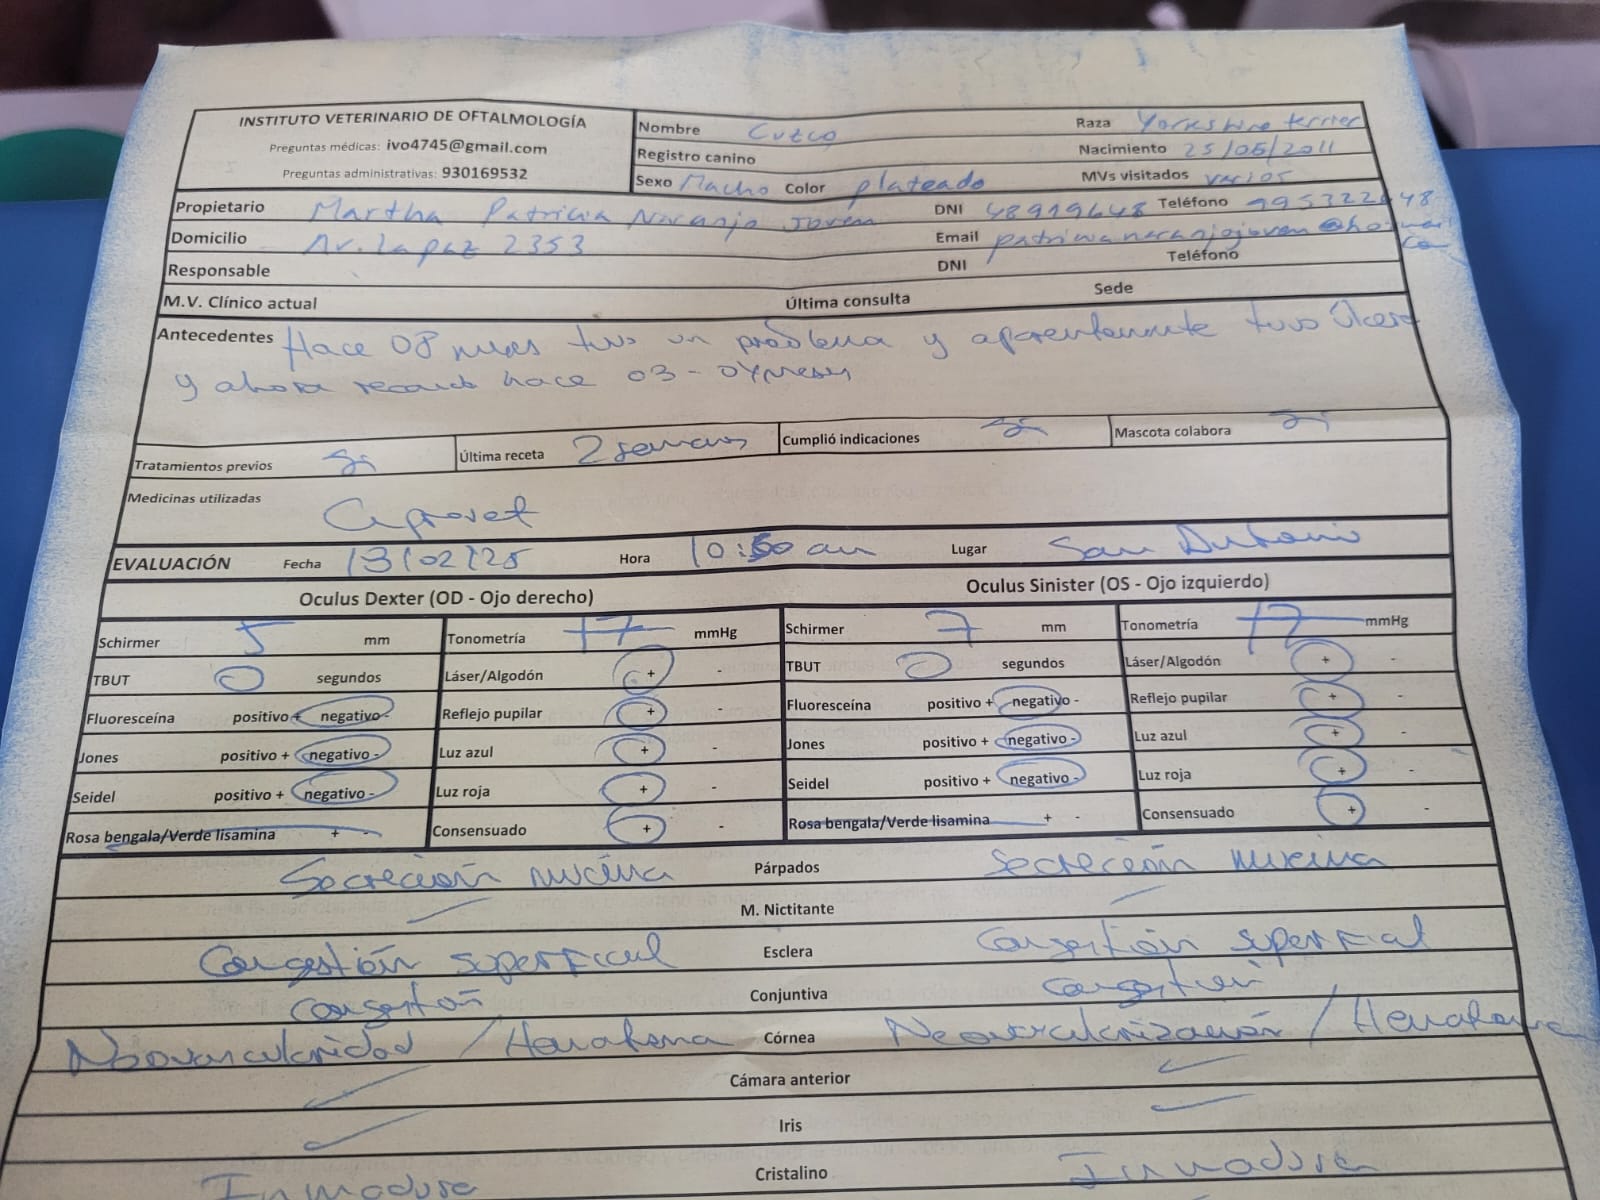 INSTITUTO VETERINARIO DE OFTALMOLOGÍA
Preguntas médicas: ivo4745@gmail.com
Preguntas administrativas: 930169532
Nombre Cuzco Raza Yorkshire terrier
Registro canino Nacimiento 25/05/2011
Sexo Macho Color plateado MVs visitados varios
Propietario Martha Patricia Naranjo Joven DNI 48919648 Teléfono 995322648
Domicilio Av. La paz 2353 Email patricianaranjojoven@
Responsable DNI Teléfono
M.V. Clínico actual Última consulta Sede
Antecedentes Hace 08 meses tuvo un problema y aparentemente tuvo Úlcera
y ahora hace 03-04 meses
Tratamientos previos Si Última receta 2 semanas Cumplió indicaciones Si Mascota colabora Si
Medicinas utilizadas
Ciprovet
EVALUACIÓN Fecha 13/02/25 Hora 10:50 am Lugar San Antonio
Oculus Dexter (OD - Ojo derecho) Oculus Sinister (OS - Ojo izquierdo)
Schirmer 5 mm Tonometría 17 mmHg Schirmer 7 mm Tonometría 17 mmHg
TBUT 0 segundos Láser/Algodón + - TBUT 0 segundos Láser/Algodón + -
Fluoresceína positivo + negativo - Reflejo pupilar + - Fluoresceína positivo + negativo - Reflejo pupilar + -
Jones positivo + negativo - Luz azul + - Jones positivo + negativo - Luz azul + -
Seidel positivo + negativo - Luz roja + - Seidel positivo + negativo - Luz roja + -
Rosa bengala/Verde lisamina + - Consensuado + - Rosa bengala/Verde lisamina + - Consensuado + -
Secreción mucina Párpados Secreción mucina
M. Nictitante
Congestión superficial Esclera Congestión superficial
Congestión Conjuntiva Congestión
Neovascularidad / Córnea Neovascularización /
Cámara anterior
Iris
Inmadura Cristalino Inmadura